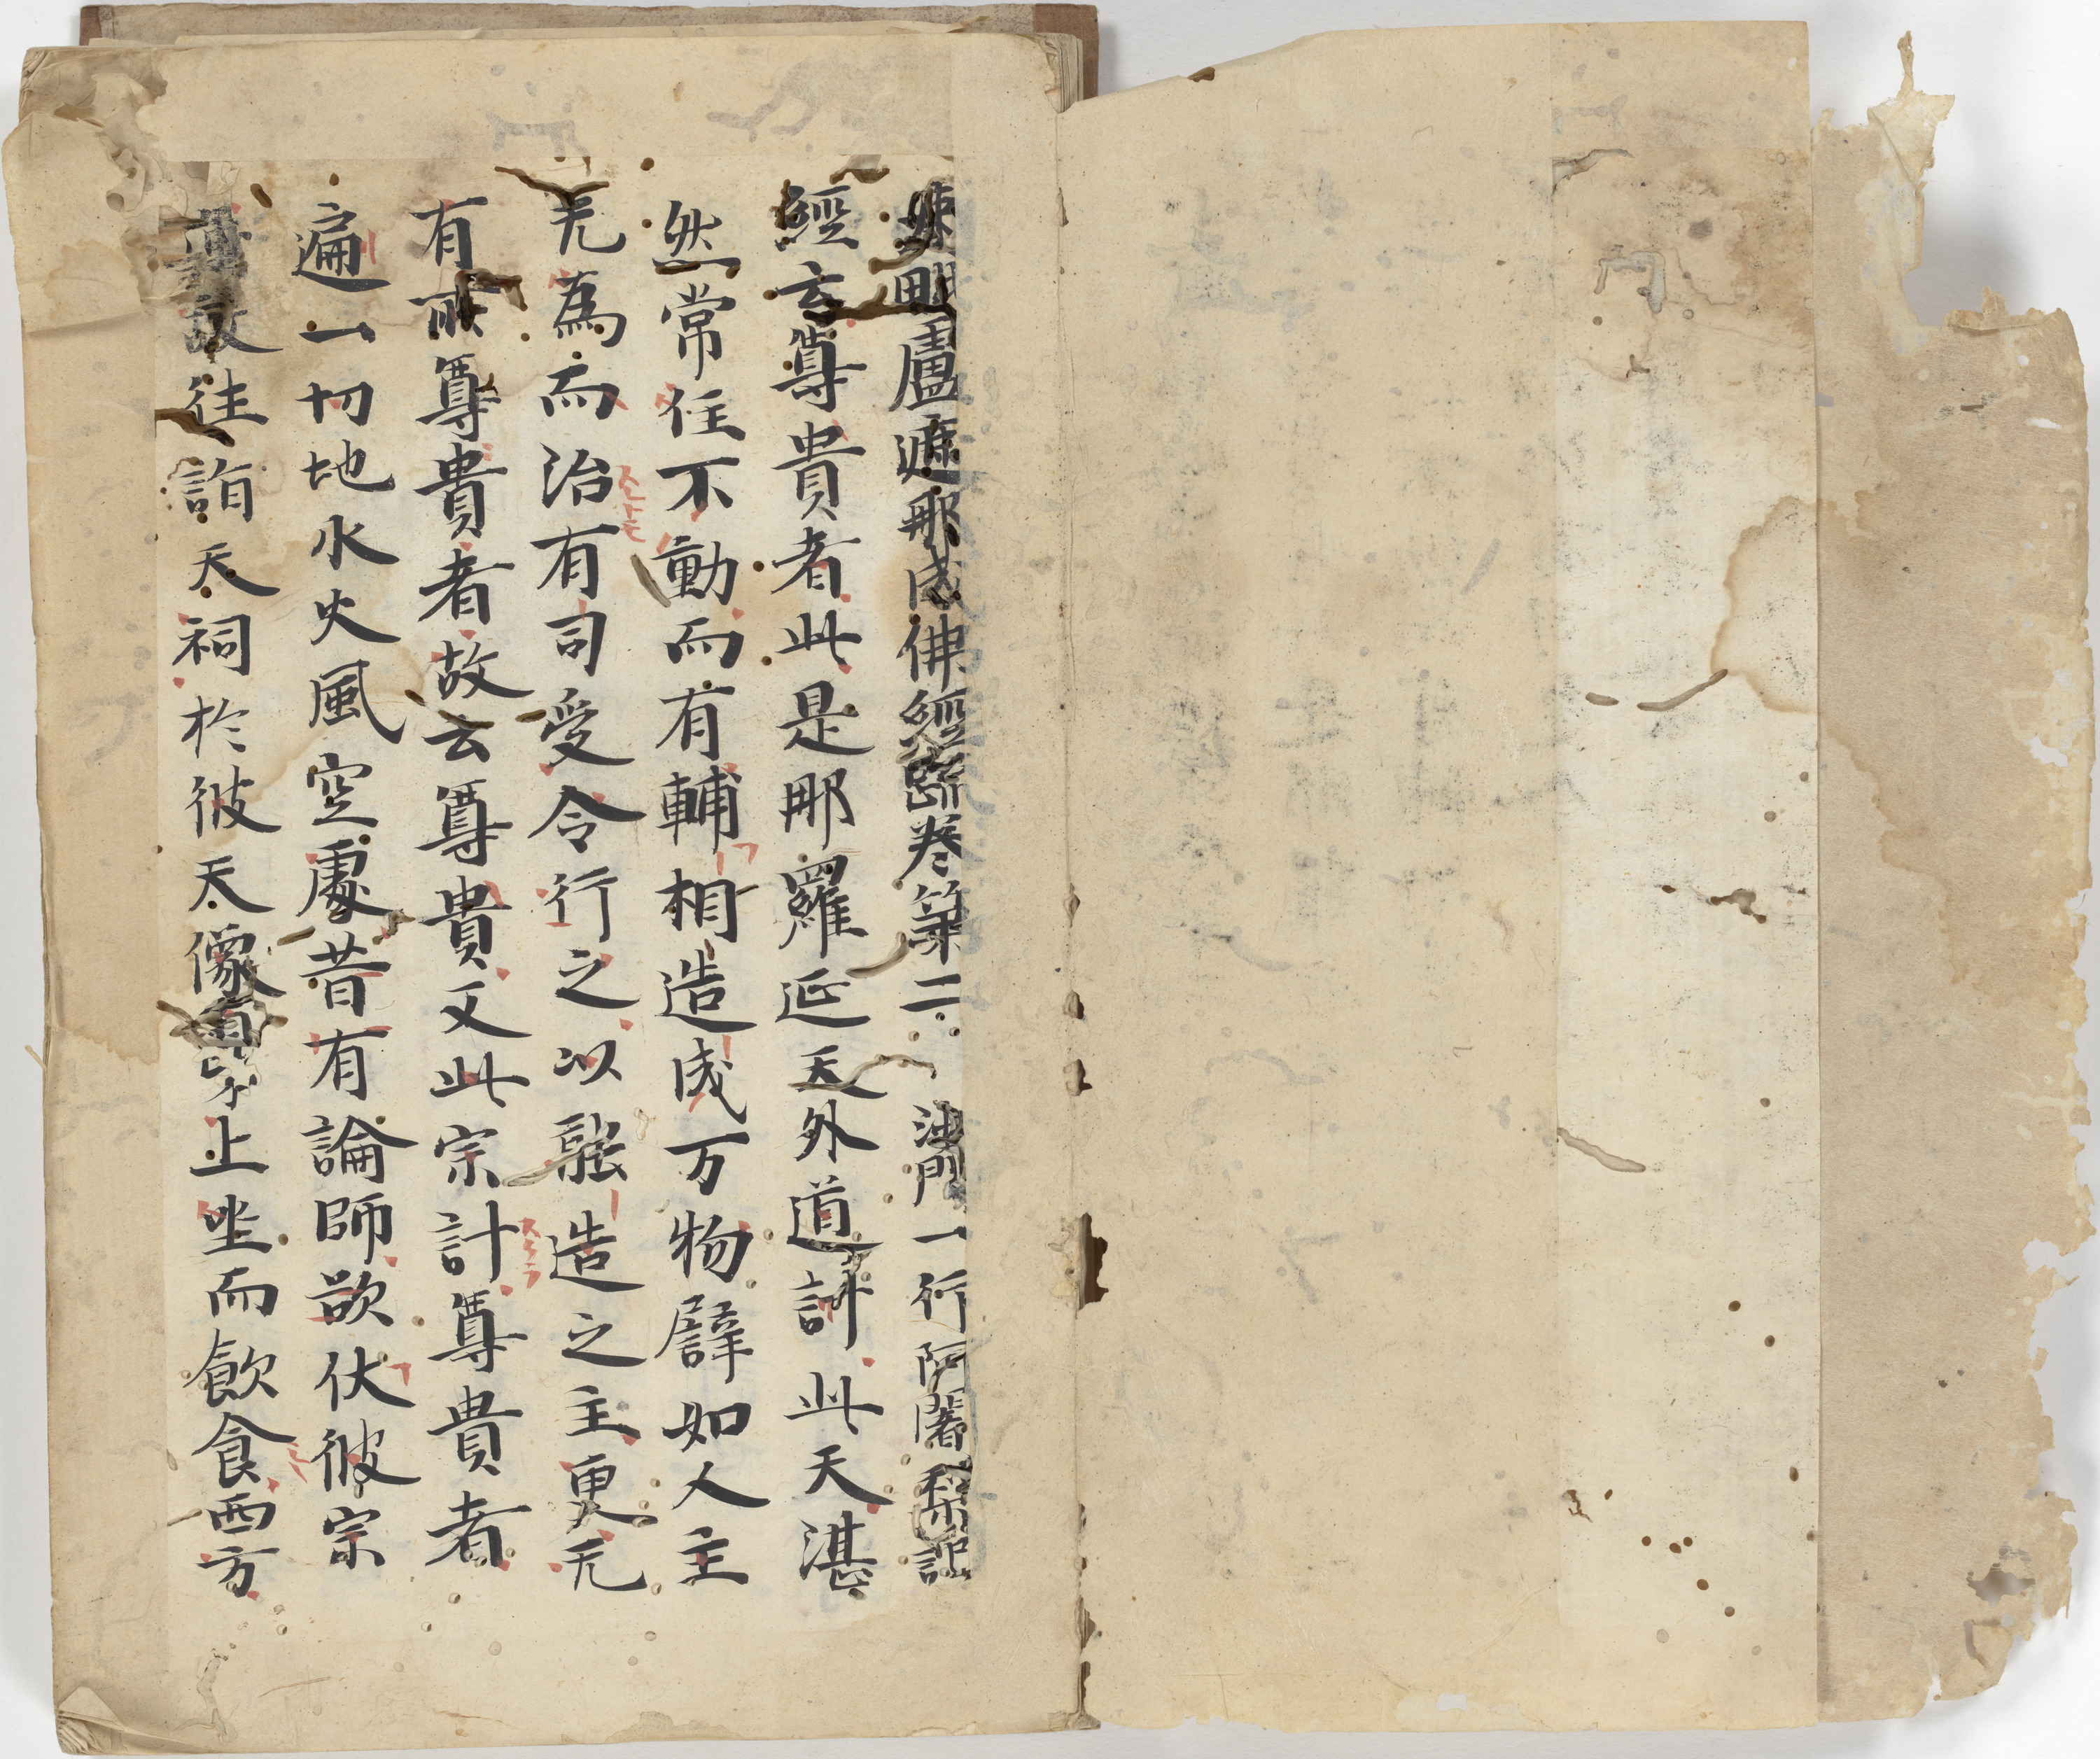 毗盧遮那成佛經疏卷第二 沙門一行阿闍梨記
經云尊貴者此是那羅延天外道計此天湛
然常住不動而有輔相造成万物譬如人主
无為而治有司受令行之以能造之主更无
有所尊貴者故云尊貴又此宗計尊貴者
遍一切地水火風空處昔有論師欲伏彼宗
故往詣天祠於彼天像身上坐而飲食西方